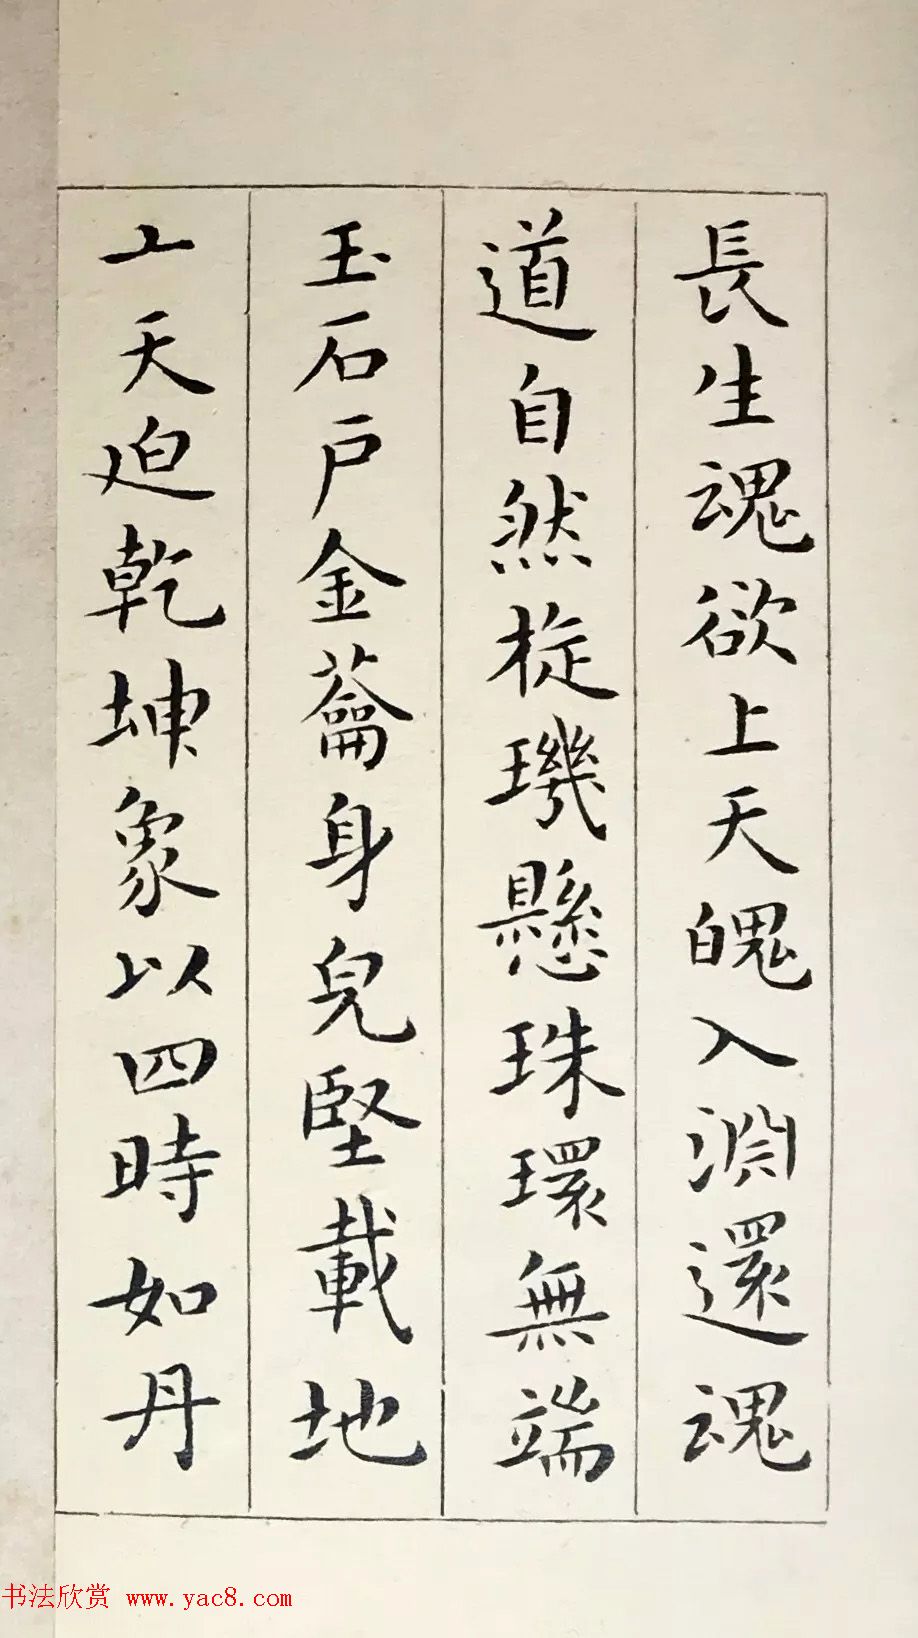 長生魂欲上天魄入淵還魂
道自然旋璣懸珠環無端
玉石戶金蘥身皃堅載地
亠天迫乾坤象以四時如丹
书法欣赏 www.yac8.com